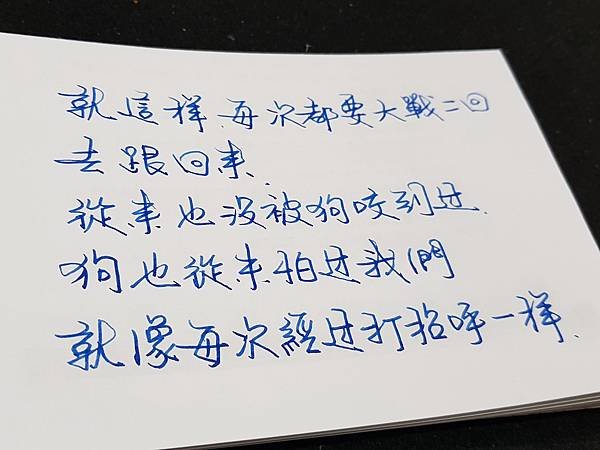 就這样.每次都要大戰二回
去跟回来.
從来也没被狗咬到过.
狗也從未怕过我們
就像每次經过打招呼一样.